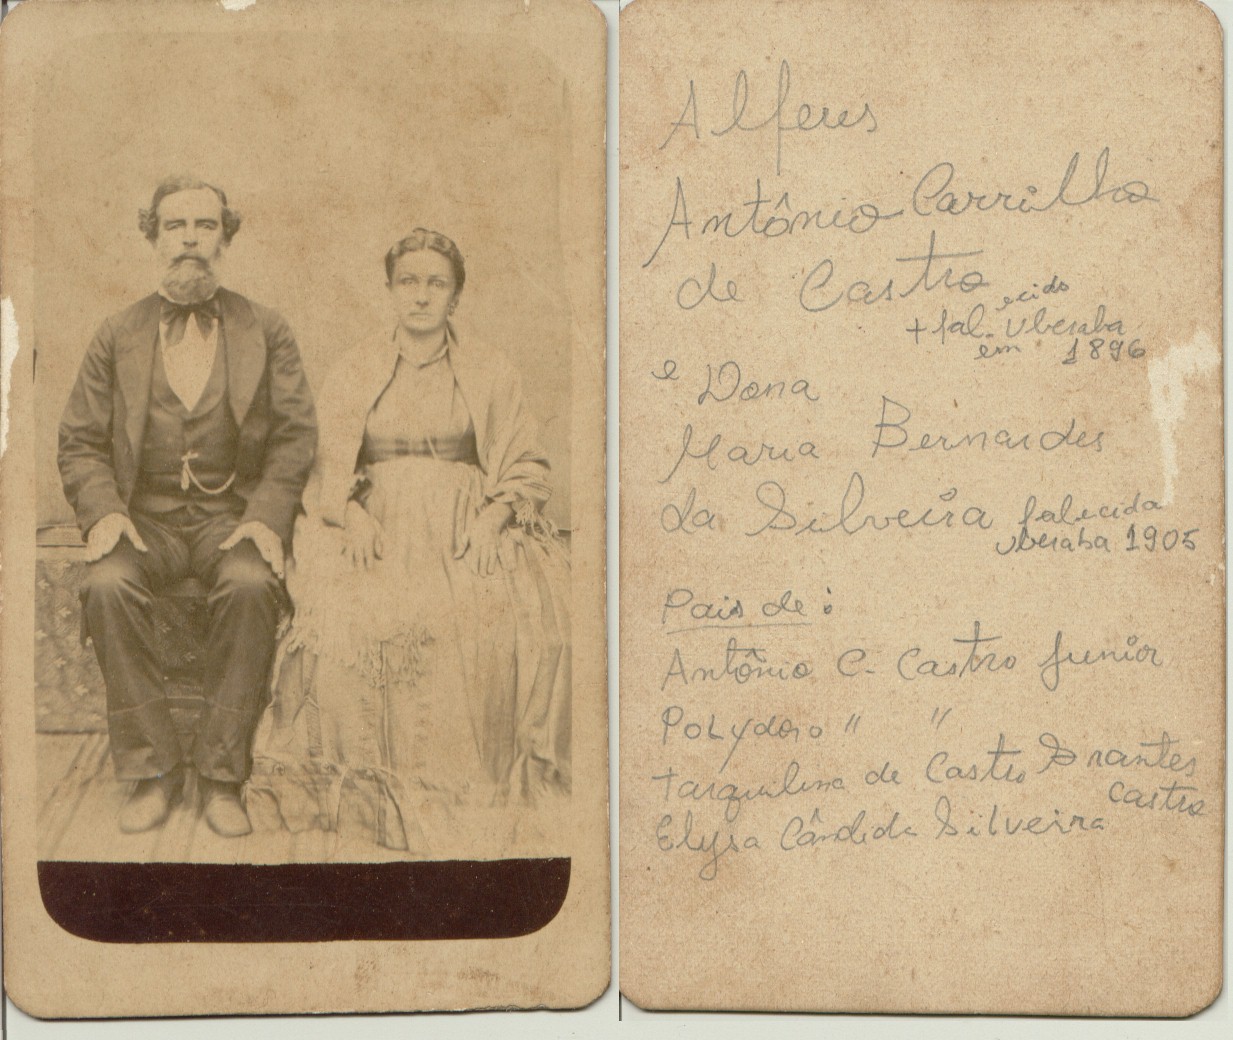 Alferes
Antônio Carrilho
de Castro
+ falecido Uberaba
em 1896
e Dona
Maria Bernardes
da Silveira falecida
Uberaba 1905
Pais de:
Antônio C. Castro Junior
Polydoro " "
Tarquilina de Castro
Castro
Elysa Cândida Silveira